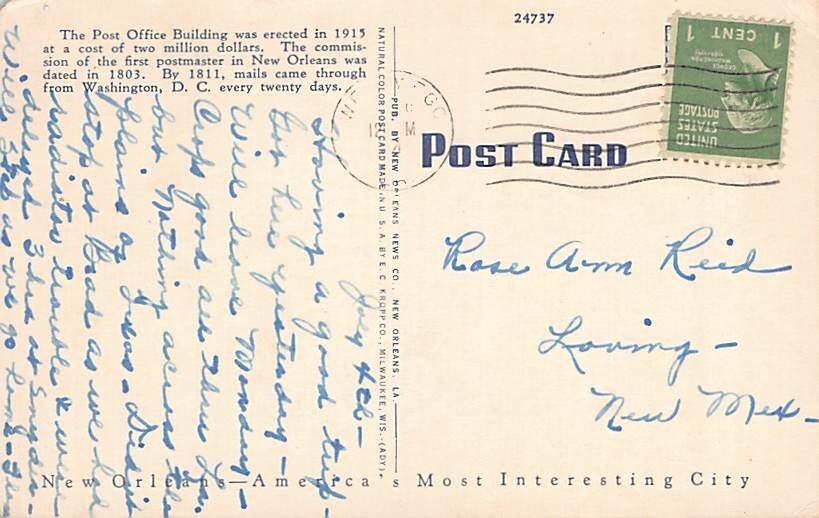 The Post Office Building was erected in 1915
at a cost of two million dollars. The commis-
sion of the first postmaster in New Orleans was
dated in 1803. By 1811, mails came through
from Washington, D. C. every twenty days.
24737
UNITED
STATES
POSTAGE
1 CENT 1
POST CARD
NATURAL COLOR POST CARD MADE IN U. S. A. BY E. C. KROPP CO., MILWAUKEE, WIS.-(ADY).
PUB. BY NEW ORLEANS NEWS CO., NEW ORLEANS, LA.
July 4th-
Having a good trip-
Got here yesterday-
Will leave Monday-
Crops good all thru La.
but nothing across the
plains of Texas- Didnt
stop at Brad as we had
radiator trouble & were
delayed 3 hrs at Snyder-
Will stop as we go home-
Rose Ann Reid
Loving-
New Mex-
New Orleans—America's Most Interesting City